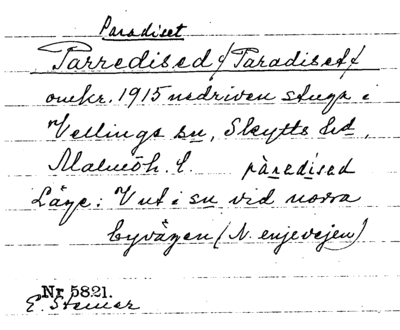 Paradiset
Parredised /Paradiset/
omkr. 1915 nedriven stuga i
Vellinge sn, Skytts hd,
Malmöh. l. pàredísed
Läge: V ut i sn vid norra
byvägen (N. enjevejen)
Nr 5821.
E. Stenar